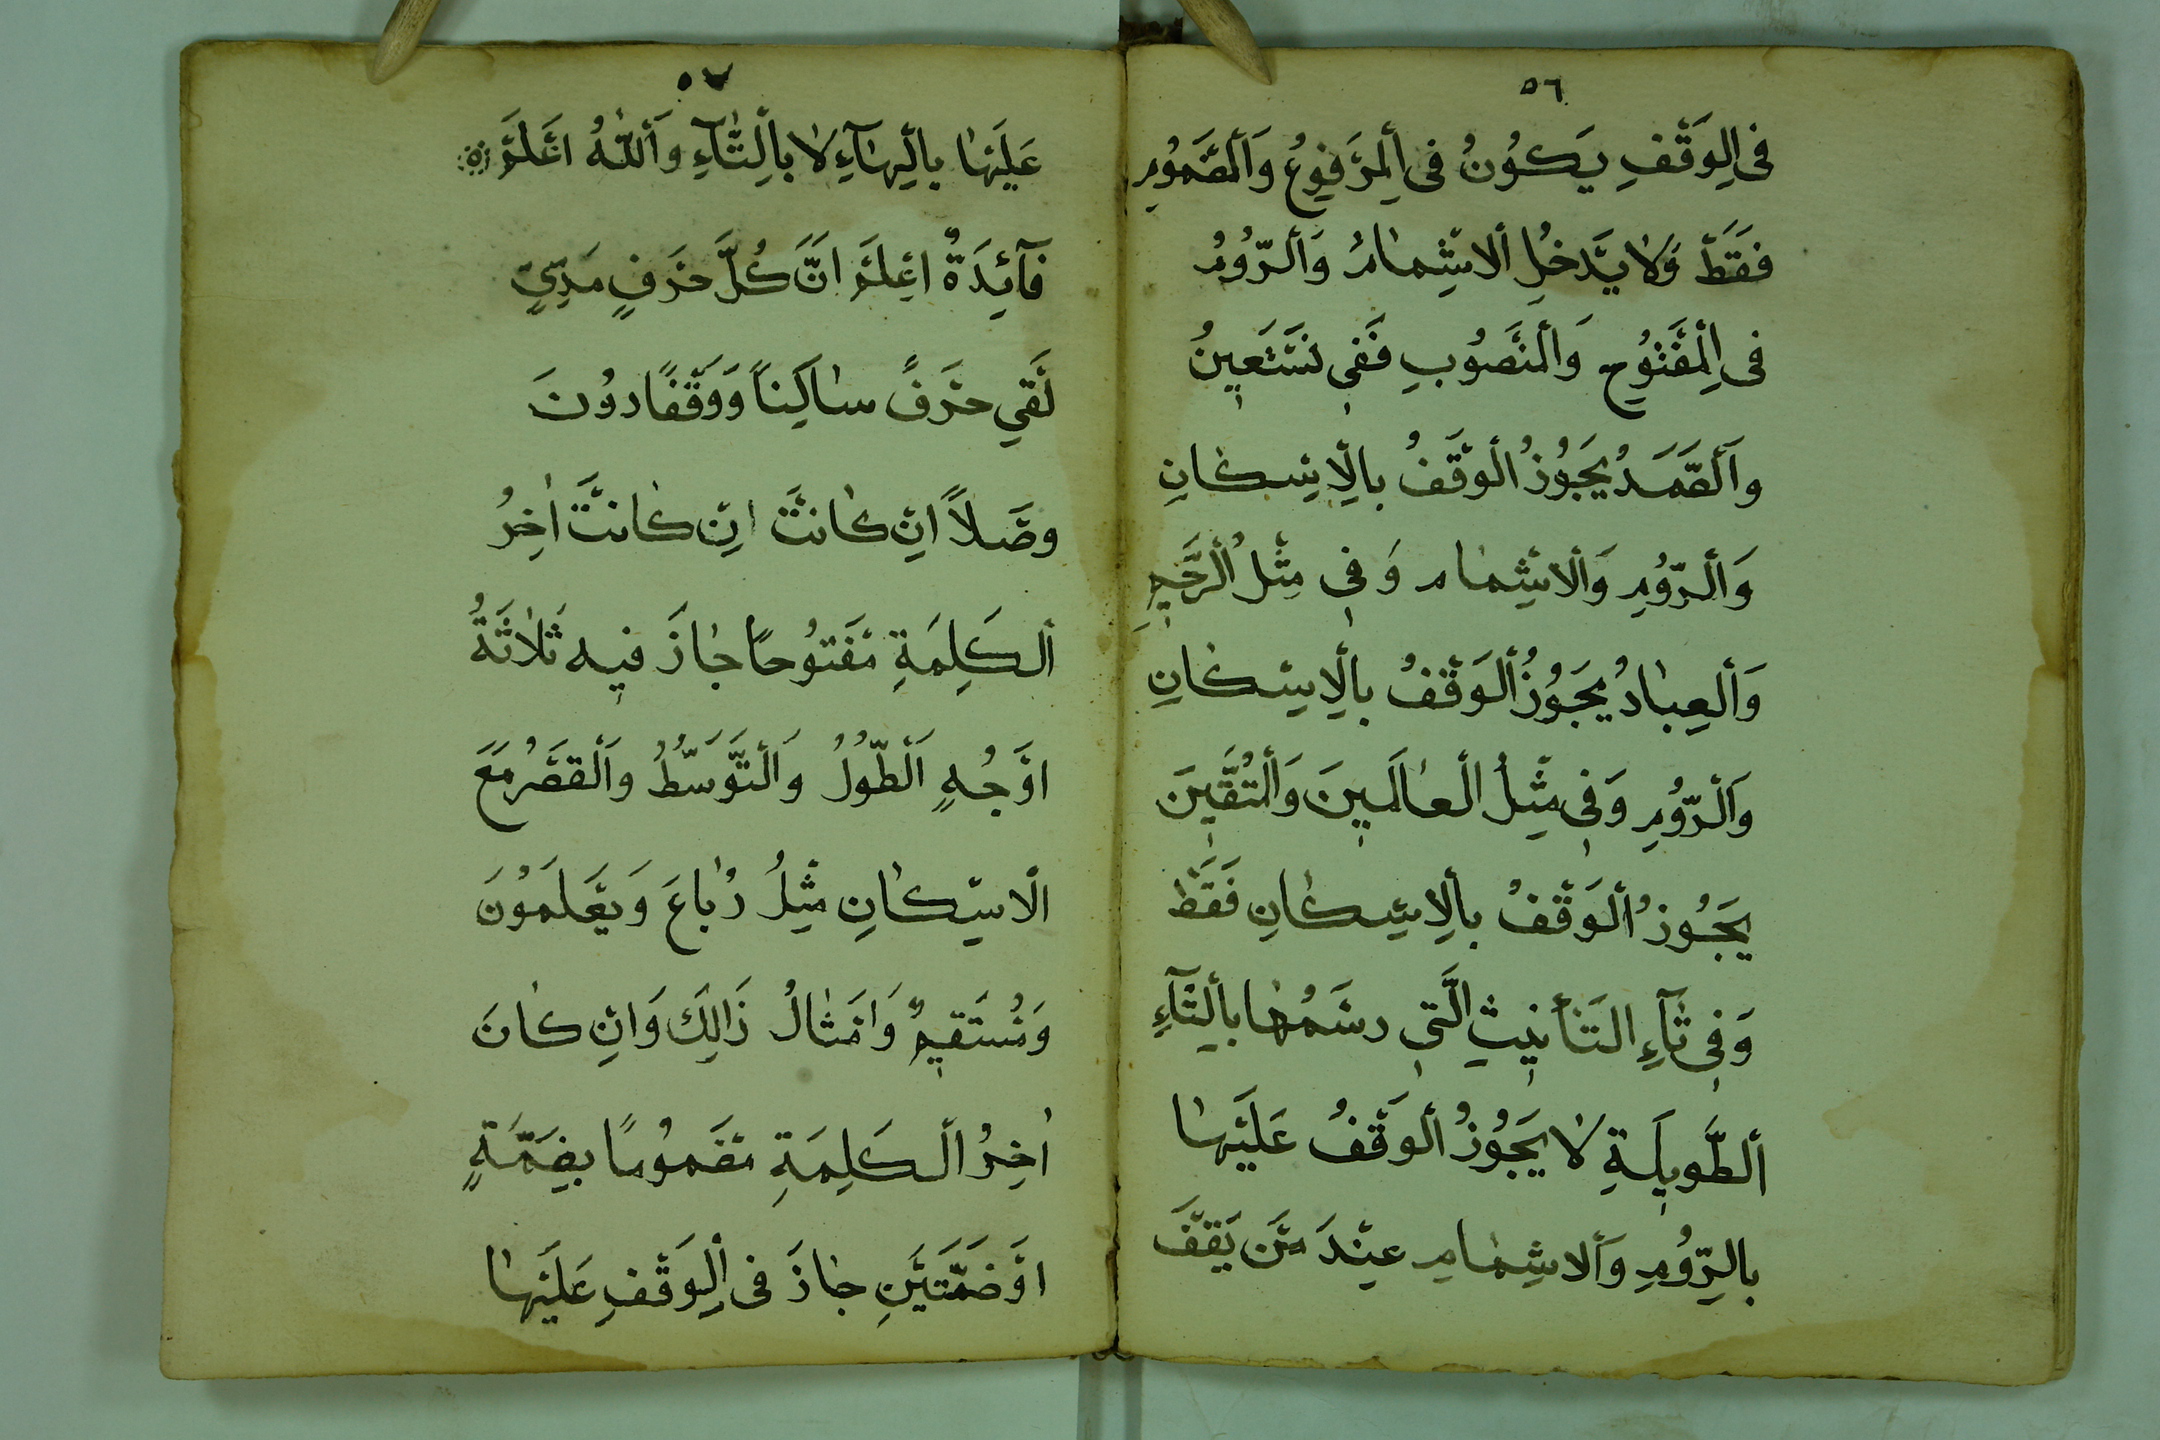 ٥٦
فِى الْوَقْفِ يَكُوْنُ فِى الْمَرْفِوعُ وَالْمَضْمُوْمِ
فَقَطْ وَلَا يَدْخُلِ الْاِشْمَامُ وَالرَّوْمُ
فِى الْمَفْتُوْحِ وَالْمَنْصُوْبِ فَفِى نَسْتَعِيْنُ
وَالصَّمَدُ يَجُوْزُ الْوَقْفُ بِالْاِسْكَانِ
وَالرَّوْمِ وَالْاِشْمَامِ وَفِى مِثْلُ الرَّحِيْمِ
وَالْعِبَادُ يَجُوْزُ الْوَقْفُ بِالْاِسْكَانِ
وَالرَّوْمِ وَفِى مِثْلُ الْعَالَمِيْنَ وَالْمُتَّقِيْنَ
يَجُوْزُ الْوَقْفُ بِالْاِسْكَانِ فَقَطْ
وَفِى تَآءِ التَّأنِيْثِ الَّتِى رَسْمُهَا بِالتَّآءِ
الطَّوِيْلَةِ لَا يَجُوْزُ الْوَقْفُ عَلَيْهَا
بِالرَّوْمِ وَالْاِشْمَامِ عِنْدَ مَنْ يَقِفُ
٥٧
عَلَيْهَا بِالْهَآءِ لَا بِالتَّآءِ وَاللّٰهُ اَعْلَمْ
فَآئِدَةٌ اِعْلَمْ اَنَّ كُلَّ حَرْفٍ مَدِّيٍ
لَقِيَ حَرْفً سَاكِنًا وَوَقْفًا دُوْنَ
وَصْلًا اِنْ كَانَتْ اِنْ كَانَتْ اٰخِرُ
الْكَلِمَةِ مَفْتُوْحًا جَازَ فِيْهِ ثَلَاثَةُ
اَوْجُهٍ الطُّوْلُ وَالتَّوَسُّطُ وَالْقَصْرُ مَعَ
الْاِسْكَانِ مِثْلُ رُبَاعَ وَيَعْلَمُوْنَ
وَمُسْتَقِيْمٌ وَاَمْثَالُ ذَالِكَ وَاِنْ كَانَ
اٰخِرُ الْكَلِمَةِ مَضْمُوْمًا بِضَمَّةٍ
اَوْ ضَمَّتَيْنِ جَازَ فِى الْوَقْفِ عَلَيْهَا